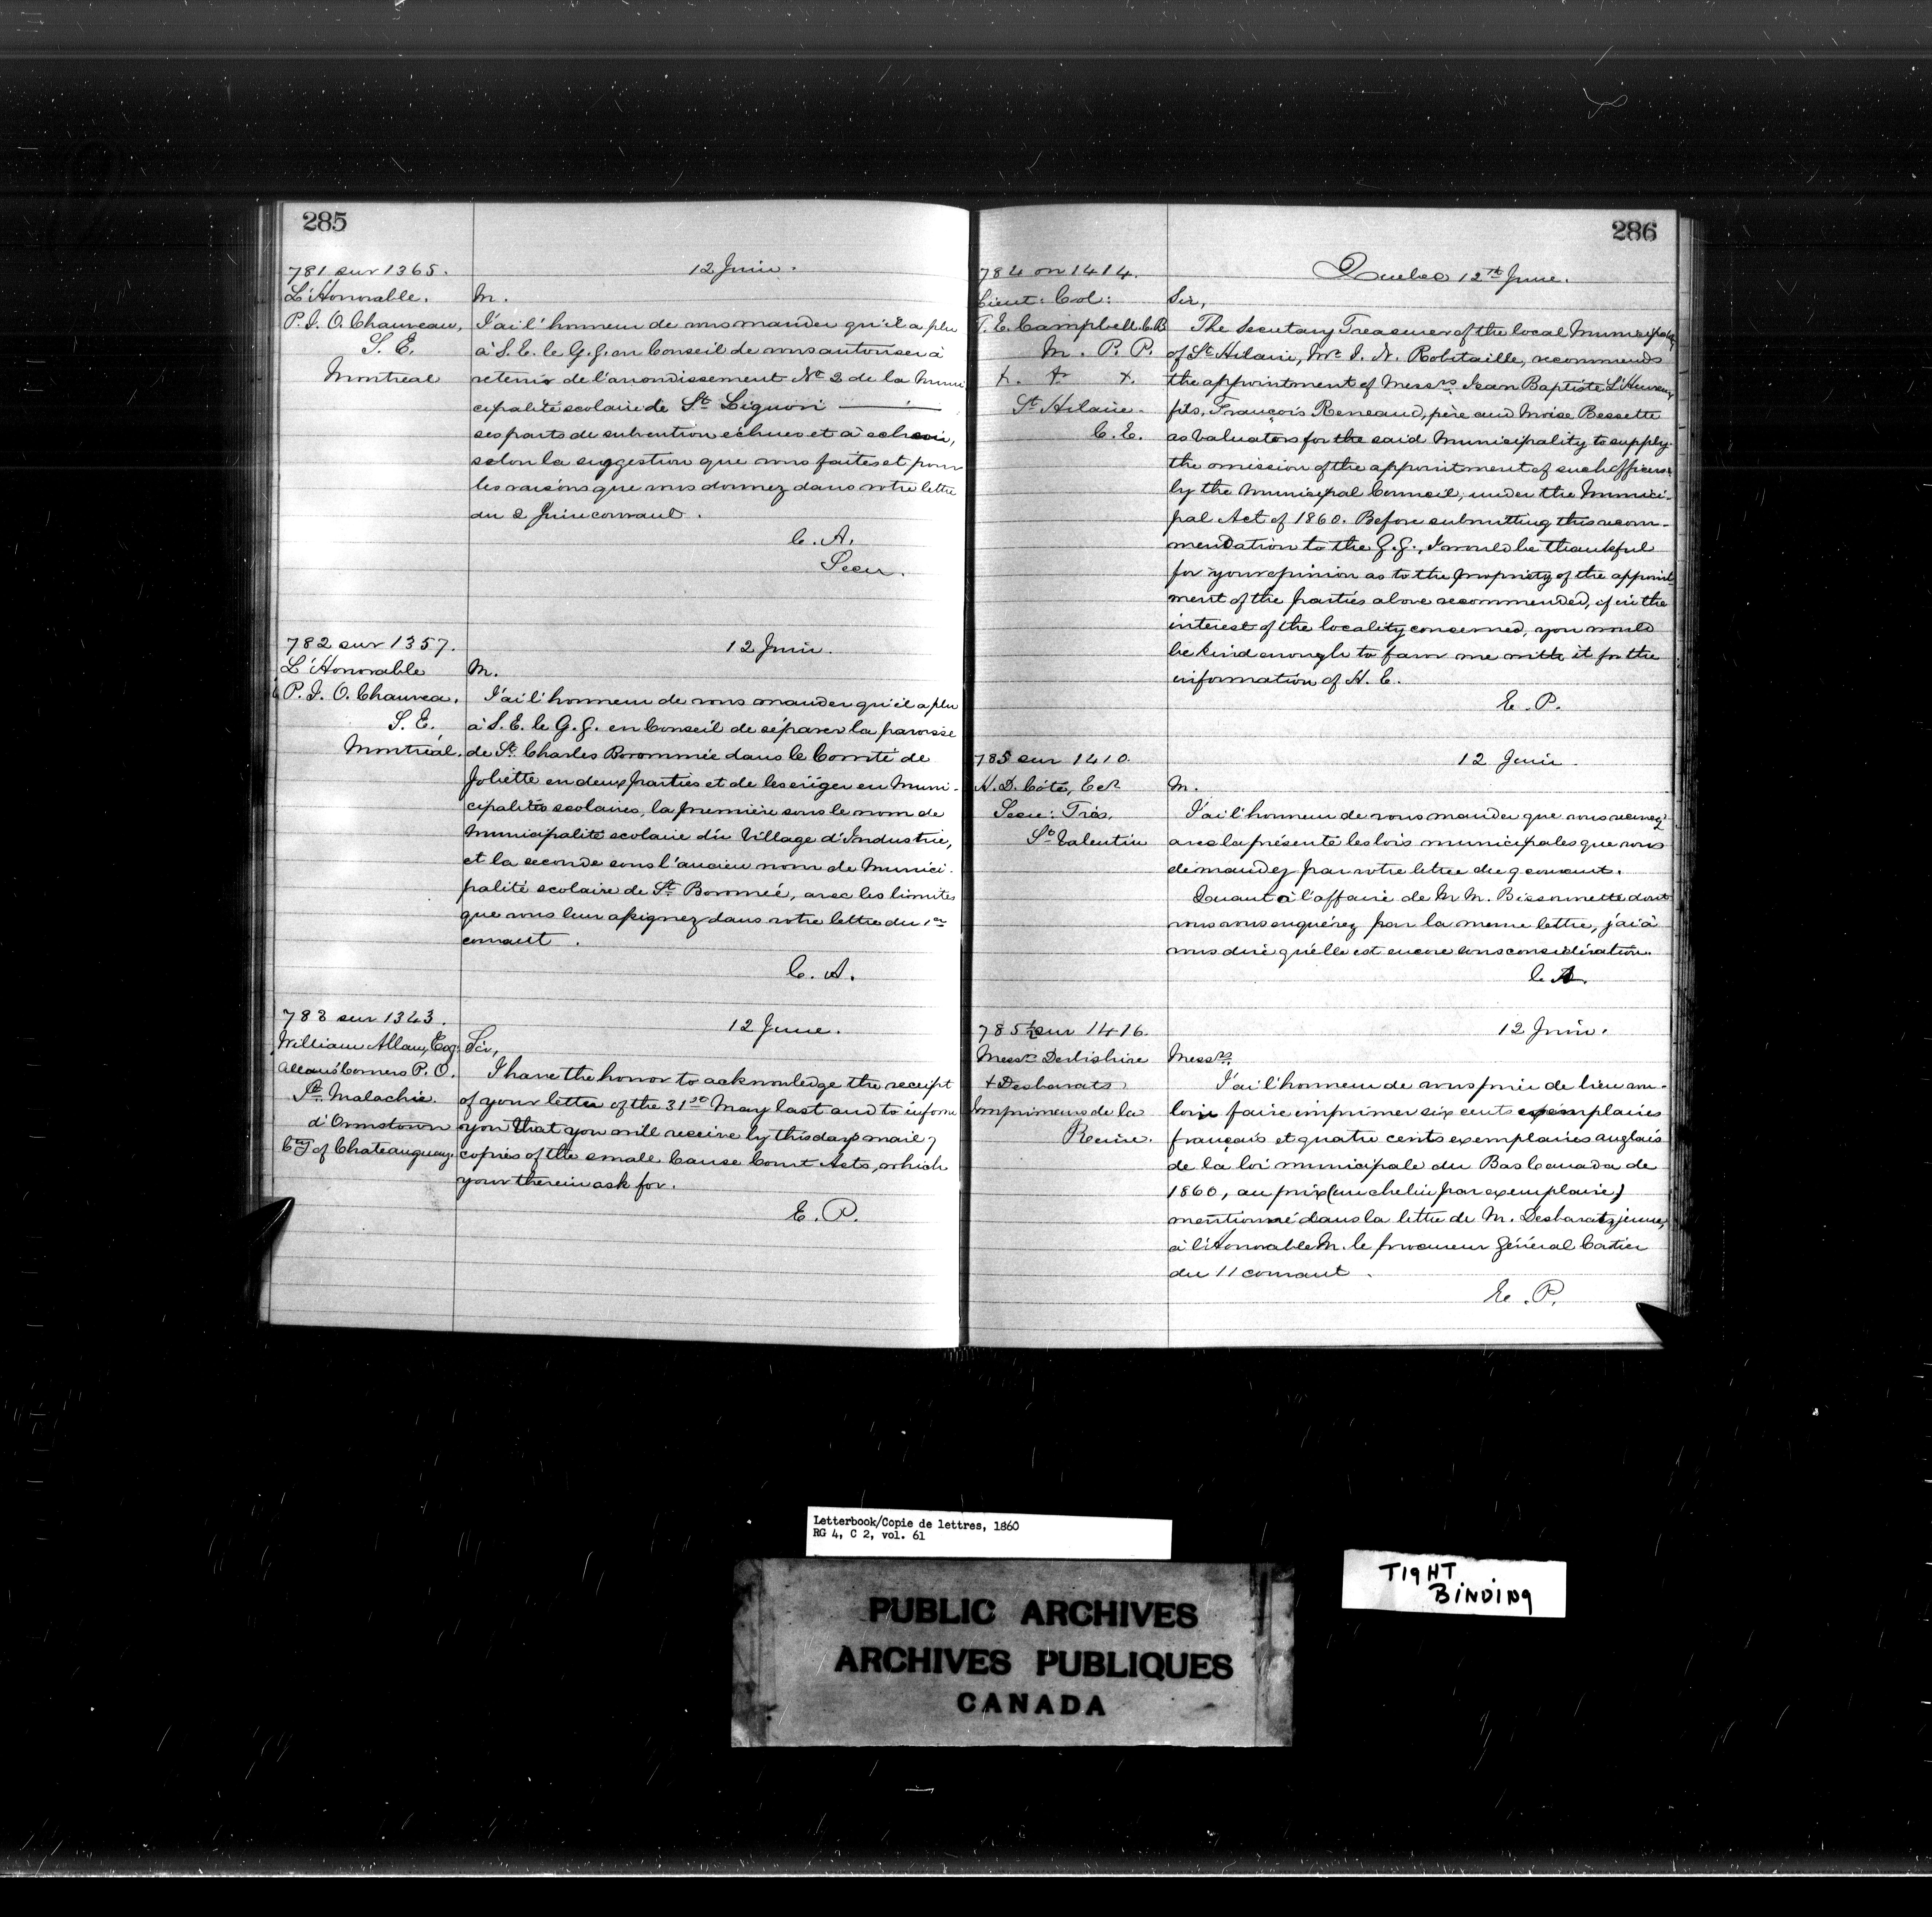 285
781 sur 1365.
12 Juin.
L'Honorable.
P. J. O. Chauveau,
S. E.
Montreal
M.
J'ai l'honneur de vous mander qu'il a plu
à S. E. le G. G. en Conseil de vous autoriser à
retenir de l'arrondissement No 2 de la Muni
cipalité scolaire de St Liguori
ses parts de subvention échues et à echeoir,
selon la suggestion que vous faites et pour
les raisons que vous donnez dans votre lettre
du 2 Juin courant.
C. A.
Secr.
782 sur 1357.
12 Juin.
L'Honorable
P. J. O. Chauvea.
S. E.
Montréal.
M.
J'ai l'honneur de vous mander qu'il a plu
à S. E. le G. G. en Conseil de séparer la paroisse
de St Charles Borommée dans le Comté de
Joliette en deux parties et de les ériger en Muni-
cipalités scolaires, la première sous le nom de
Municipalité scolaire du Village d'Industrie,
et la seconde sous l'ancien nom de Munici-
palité scolaire de St Boromeé, avec les limites
que vous leur assignez dans votre lettre du 1er
courant.
C. A.
783 sur 1343.
12 June.
William Allan, Esq:
Allans' Corners P. O.
St Malachie
d'Ormstown
Cty of Chateauguay.
Sir,
I have the honor to acknowledge the receipt
of your letter of the 31st May last and to inform
you that you will receive by this days mail,
copies of the small Cause Court Acts, which
your therein ask for.
E. P.
286
784 on 1414.
Quebec 12th June.
Lieut: Col:
T. E. Campbell. C. B
M. P. P.
+. +. +.
St Hilaire.
C. E.
Sir,
The Secretary Treasurer of the local Municipality
of St Hilaire, Mr J. N. Robitaille, recommends
the appointment of Messrs Jean Baptiste L'Heureux
fils, François Reneaud, père and Moise Bessette
as valuators for the said Municipality to supply
the omission of the appointment of such officers
by the Municipal Council, under the Munici-
pal Act of 1860. Before submitting this recom-
mendation to the G. G., I would be thankful
for your opinion as to the propriety of the appoint-
ment of the parties above recommended, if in the
interest of the locality concerned, you would
be kind enough to favor me with it for the
information of H. E.
E. P.
785 sur 1410.
12 Juin.
H. D. Côté, Ecr
Secre: Trés.
St Valentin
M.
J'ai l'honneur de vous mander que vous recevrez
avec la présente les lois municipales que vous
demandez par votre lettre du 9 courant.
Quant à l'affaire de M M. Bissonnette dont
vous vous enquérez par la meme lettre, j'ai à
vous dire qu'elle est encore sous considération.
C. A.
785½ sur 1416.
12 Juin.
Messrs Derbishire
+ Desbarats
Imprimeurs de la
Reine.
Messrs
J'ai l'honneur de vous prier de bien vou-
loir faire imprimer six cents exemplaires
français et quatre cents exemplaires anglais
de la loi municipale du Bas Canada de
1860, au prix (un chelin par exemplaire)
mentionné dans la lettre de M. Desbarats jeune,
à l'Honorable M. le procureur Général Cartier
du 11 courant.
E. P.
Letterbook/Copie de lettres, 1860
RG 4, C 2, vol. 61
TIGHT
BINDING
PUBLIC ARCHIVES
ARCHIVES PUBLIQUES
CANADA